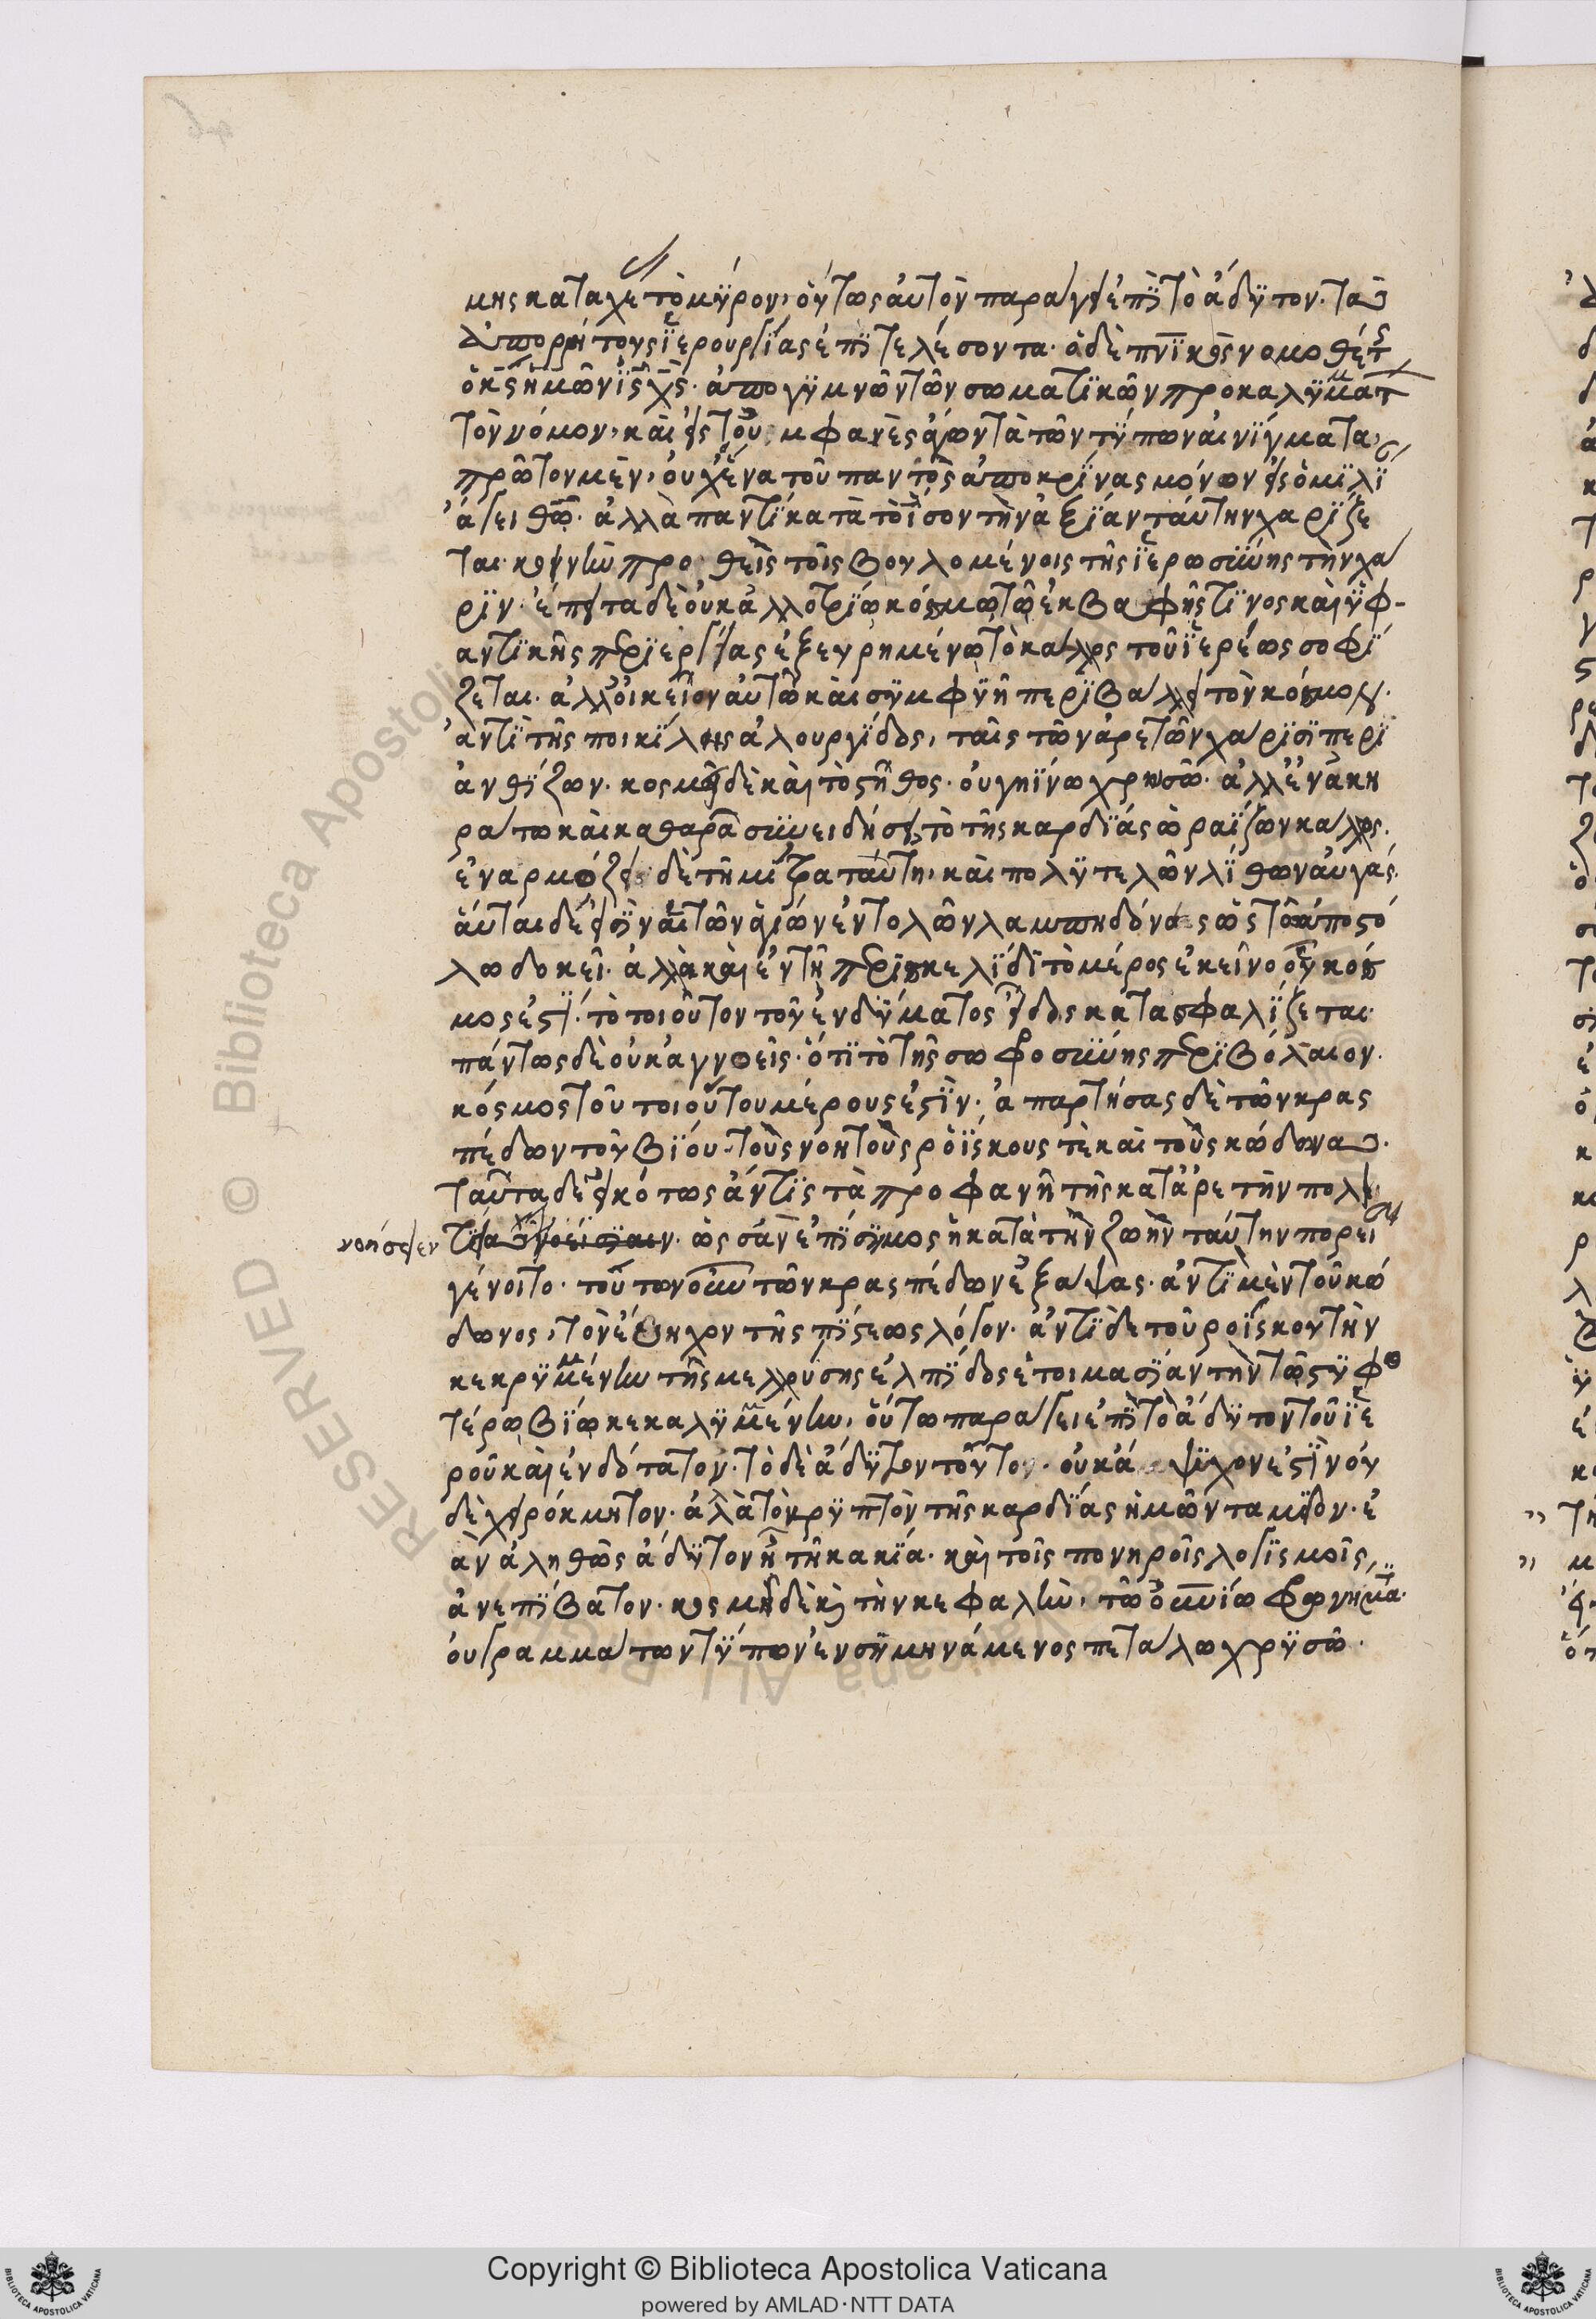 μης καταχεῖ τὸ μῦρον, οὕτως αὐτὸν παράγει ἐπὶ τὸ ἄδυτον. τὰς
ἀπορρήτους ἱερουργίας ἐπιτελέσοντα. ὁ δὲ πνικὸς νομοθέτης
ὁ κς ἡμῶν ις χς. ἀπογυμνῶν τῶν σωματικῶν προκαλυμμάτ
τὸν νόμον, καὶ εἰς τοὐμφανὲς ἄγων τὰ τῶν τύπων αἰνίγματα,
πρῶτον μὲν, οὐχ ἕνα τοῦ παντὸς ἀποκρίνας μόνον εἰς ὁμιλί
αν ἄγει θῶ. ἀλλὰ παντὶ κατὰ τὸ ἴσον τὴν ἀξίαν ταύτην χαρίζε
ται. κοινὴν προθεὶς τοῖς βουλομένοις τῆς ἱερωσύνης τὴν χά
ριν. ἔπειτα δὲ οὐκ ἀλλοτρίῳ κόσμῳ τῷ ἐκ βαφῆς τινος καὶ ὑφ-
αντικῆς περιεργίας ἐξευρημένῳ τὸ κάλλος τοῦ ἱερέως σοφί
ζεται. ἀλλ' οἰκεῖον αὐτῷ καὶ συμφυῆ περιβάλλει τὸν κόσμον.
ἀντὶ τῆς ποικίλης ἁλουργίδος, ταῖς τῶν ἀρετῶν χάρισι περι
ανθίζων. κοσμεῖ δὲ καὶ τὸ στῆθος. οὐ γηίνῳ χρυσῷ. ἀλλ' ἐν ἀκη
ράτῳ καὶ καθαρᾷ συνειδήσει, τὸ τῆς καρδίας ὡραΐζων κάλλος.
ἐναρμόζει δὲ τῇ μίτρᾳ ταύτῃ, καὶ πολυτελῶν λίθων αὐγάς.
αὗται δέ εἰσιν αἱ τῶν ἁγίων ἐντολῶν λαμπηδόνες ὡς τῷ ἀποστό
λῳ δοκεῖ. ἀλλὰ καὶ ἐν τῇ περισκελίδι τὸ μέρος ἐκεῖνο οὗ κόσ
μος ἐστι. τὸ τοιοῦτον τοῦ ἐνδύματος εἶδος κατασφαλίζεται.
πάντως δὲ οὐκ ἀγνοεῖς. ὅτι τὸ τῆς σωφροσύνης περιβόλαιον.
κόσμος τοῦ τοιούτου μέρους ἐστὶν. ἀπαρτήσας δὲ τῶν κρασ
πέδων τοῦ βίου τοὺς νοητοὺς ῥοΐσκους τὲ καὶ τοὺς κώδωνας.
ταῦτα δ' εἰκότως ἄν τις τὰ προφανῆ τῆς κατ' ἀρετὴν πολι
νοήσειεν
γένοιτο. τούτων οὖν τῶν κρασπέδων ἐξάψας. ἀντὶ μὲν τοῦ κώ
δωνος, τὸν εὔηχον τῆς πίστεως λόγον. ἀντὶ δὲ τοῦ ῥοΐσκου τὴν
κεκρυμμένην τῆς μελλούσης ἐλπίδος ἑτοιμασίαν τὴν τῷ στυφο
τέρῳ βίῳ κεκαλυμμένην, οὕτω παράγει ἐπὶ τὸ ἄδυτον τοῦ ἱε
ροῦ καὶ ἐνδότατον. τὸ δὲ ἄδυτον τοῦτον. οὐκ ἄψυχον ἐστὶν οὐ
δὲ χειρόκμητον. ἀλλὰ τὸ κρυπτὸν τῆς καρδίας ἡμῶν ταμεῖον. ἐ
ὰν ἀληθῶς ἄδυτον ᾖ τῇ κακίᾳ. καὶ τοῖς πονηροῖς λογισμοῖς,
ἀνεπίβατον. κοσμεῖ δὲ καὶ τὴν κεφαλὴν, τῷ οὐνίῳ φρονήμα.
οὐ γραμμάτων τύπων ἐνσημηνάμενος πετάλῳ χρυσῷ.